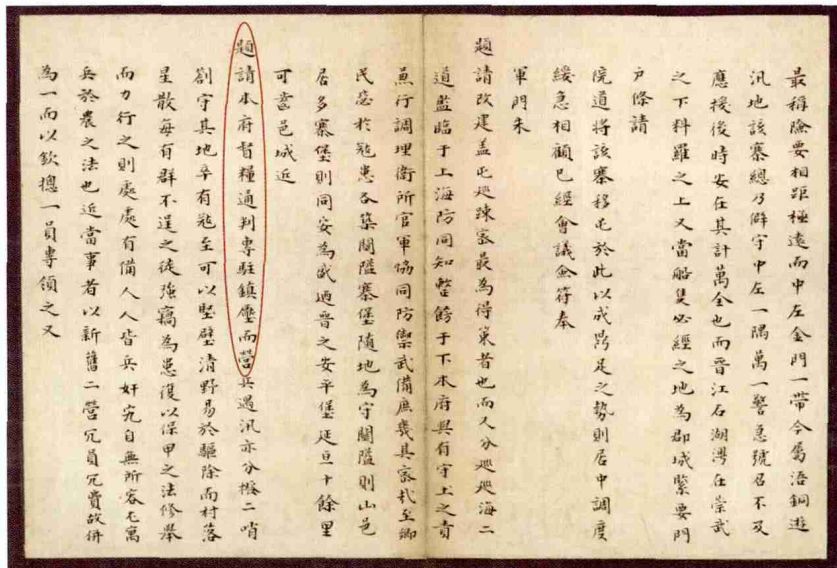 最稱險要相距極遠而中左金門一帶今屬浯銅遊
汛地該寨總乃僻守中左一隅萬一警急號召不及
應援後時安在其計萬全也而晋江石湖灣在崇武
之下料羅之上又當船隻必經之地為郡城緊要門
戶條請
院道將該寨移屯於此以成鼎足之勢則居中調度
緩急相顧已經會議僉符奉
軍門朱
題請改建盖屯廵最為得策者也而又分廵廵海二
道監臨于上海防同知整飭于下本府與有守土之責
行調理衛所官軍協同防禦武備庶幾其密哉至鄉
民於冦患各築關隘寨堡隨地為守關隘則山邑
居多寨堡則同安為盛廼晋之安平堡延亘十餘里
可當邑城近
題請本府督糧通判專駐鎮壓而營兵遇汛亦分撥二哨
劄守其地卒有冦至可以堅壁清野易於驅除而村落
星散每有群不逞之徒強竊為患復以保甲之法修舉
而力行之則處處有備人人皆兵奸宄自無所容寓
兵於農之法也近當事者以新舊二營冗員冗費故併
為一而以欽總一員專領之又